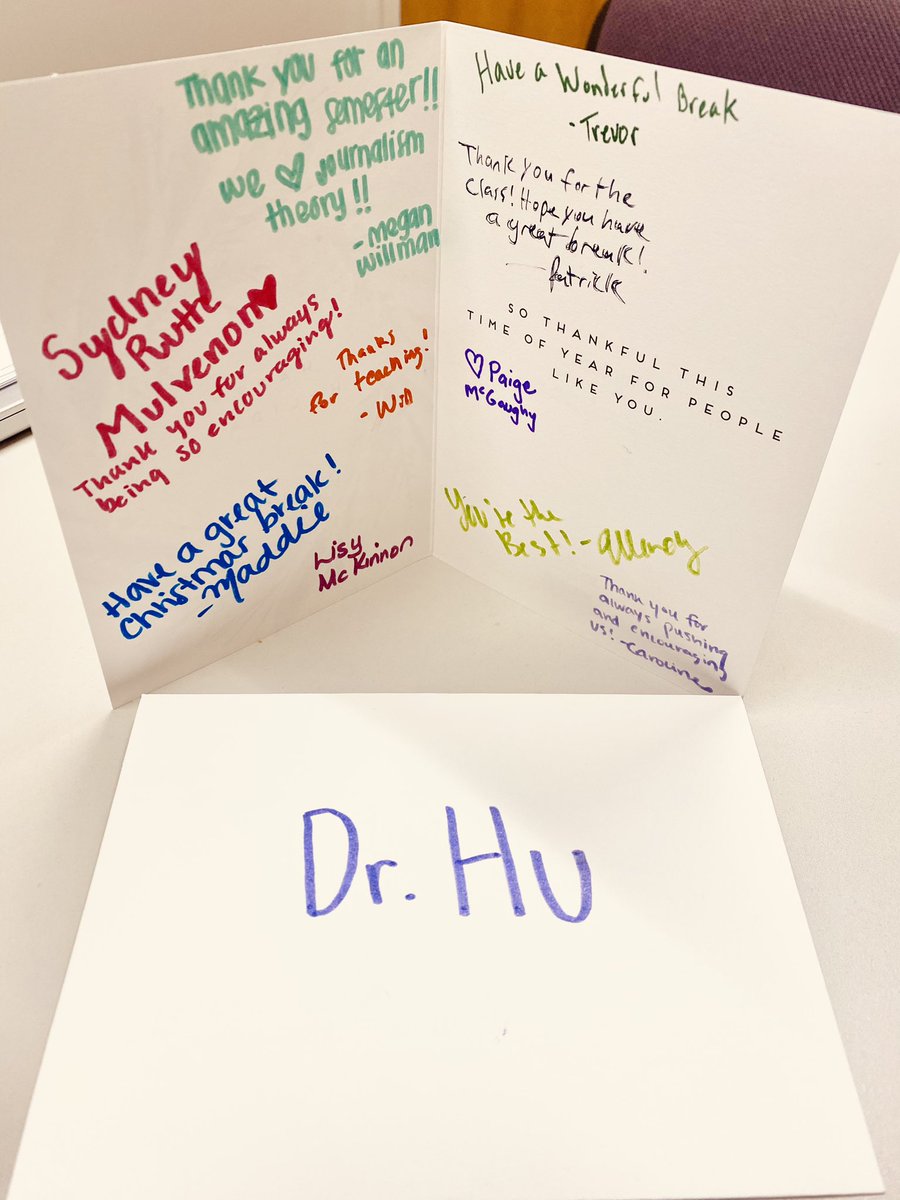 Thank you for an
amazing semester!!
we ♡ journalism
theory!!
- megan
willman
Sydney
Rutte
Mulvenon♥
Thank you for always
being so encouraging!
Thanks
for teaching!
- Will
Have a great
christmas break!
- Maddie
Lisy
McKinnon
Have a Wonderful Break
- Trevor
Thank you for the
class! Hope you have
a great break!
- Patrick
SO THANKFUL THIS
TIME OF YEAR FOR PEOPLE
LIKE YOU.
♡ Paige
McGaughy
You're the
Best! -
Thank you for
always pushing
and encouraging
us! - Caroline
Dr. Hu